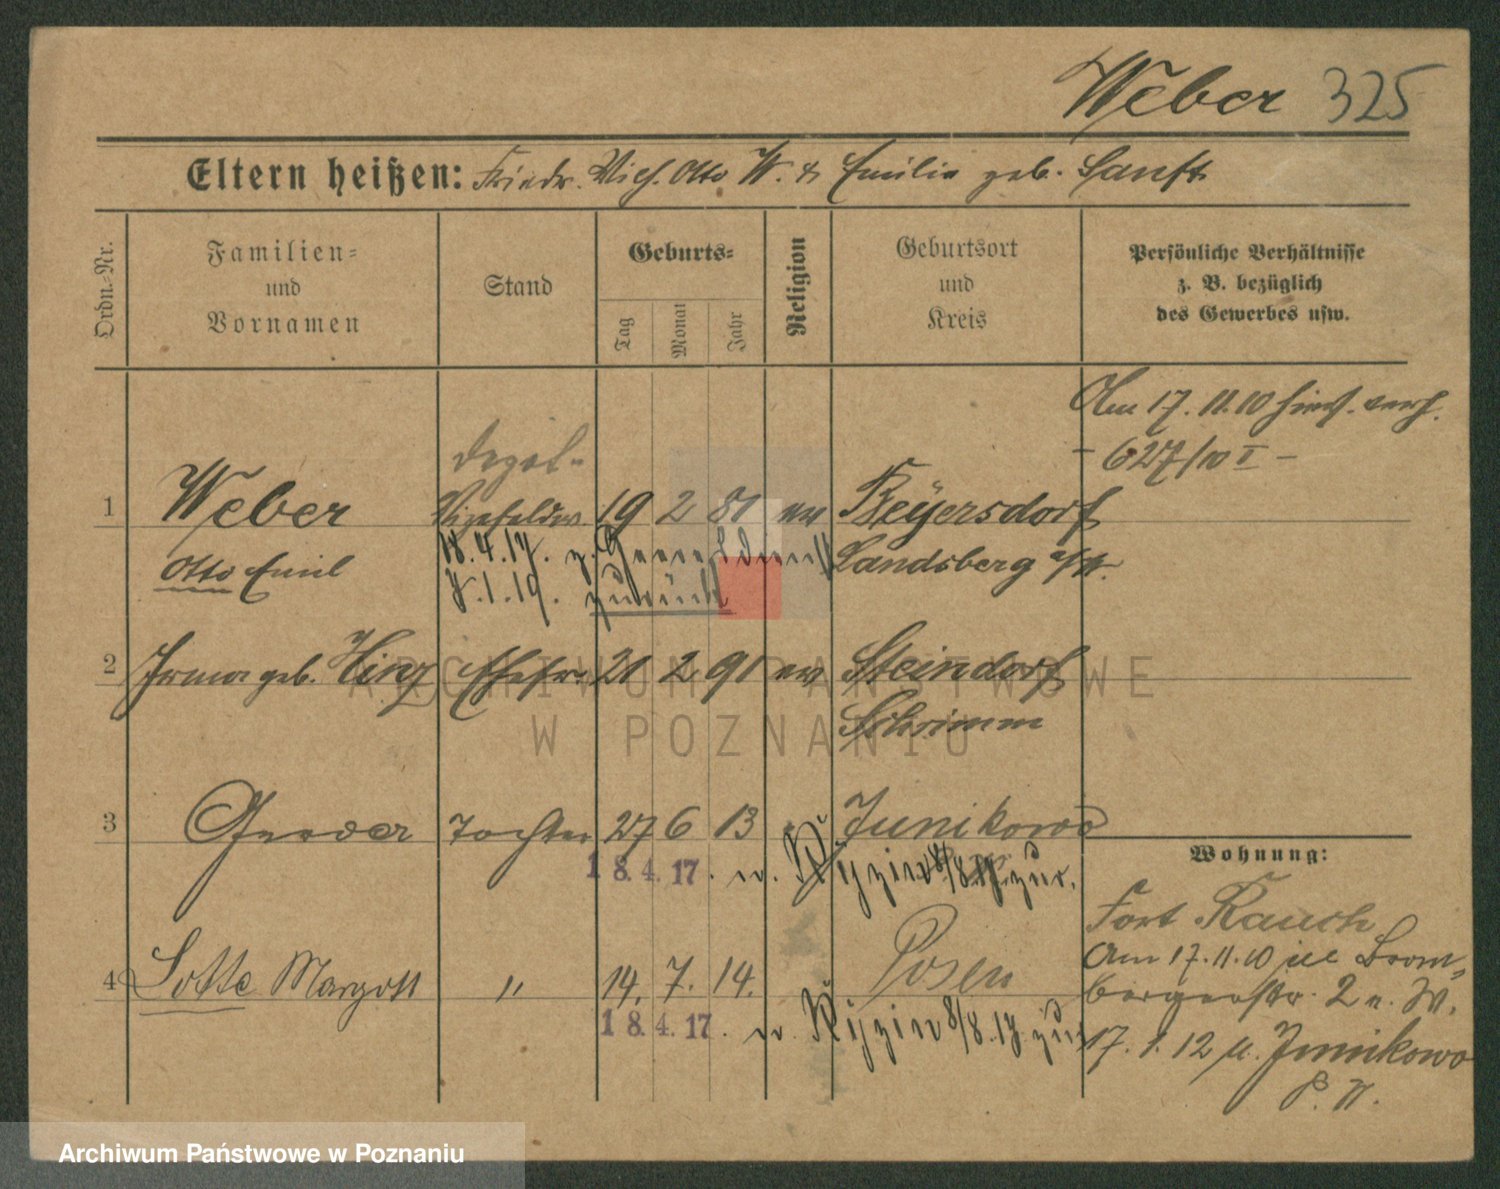 Weber 325
Eltern heißen: Friedr. Wilh. Otto W. & Emilie geb. Sanft
Ordn.-Nr.
Familien-
und
Vornamen
Stand
Geburts-
Tag
Monat
Jahr
Religion
Geburtsort
und
Kreis
Persönliche Verhältnisse
z. B. bezüglich
des Gewerbes usw.
Am 17. 11. 10 hies. verh.
- 627/10 I -
1 Weber Vizefeldw. 19 2 81 ev Beyersdorf
Otto Emil
18. 4. 17. z. Heeresdienst
Landsberg a/W.
7. 1. 19. zurück
2 Irma geb. Hinz Ehefr. 21 2 91 ev Steindorf
Schrimm
3 Gerda Tochter 27 6 13 Junikowo
18. 4. 17. n. 8/8 17 zur.
Wohnung:
Fort Rauch
Am 17. 11. 10 Brom-
bergerstr. 2 n. W.
4 Lotte Margott " 14. 7. 14. Posen
18. 4. 17. n. 8/8. 17 zur
17. 1. 12 n. Junikowo
P. W.
ARCHIWUM PAŃSTWOWE
W POZNANIU
Archiwum Państwowe w Poznaniu